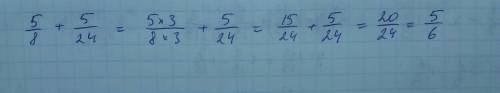 5/8 + 5/24 = 5×3/8×3 + 5/24 = 15/24 + 5/24 = 20/24 = 5/6